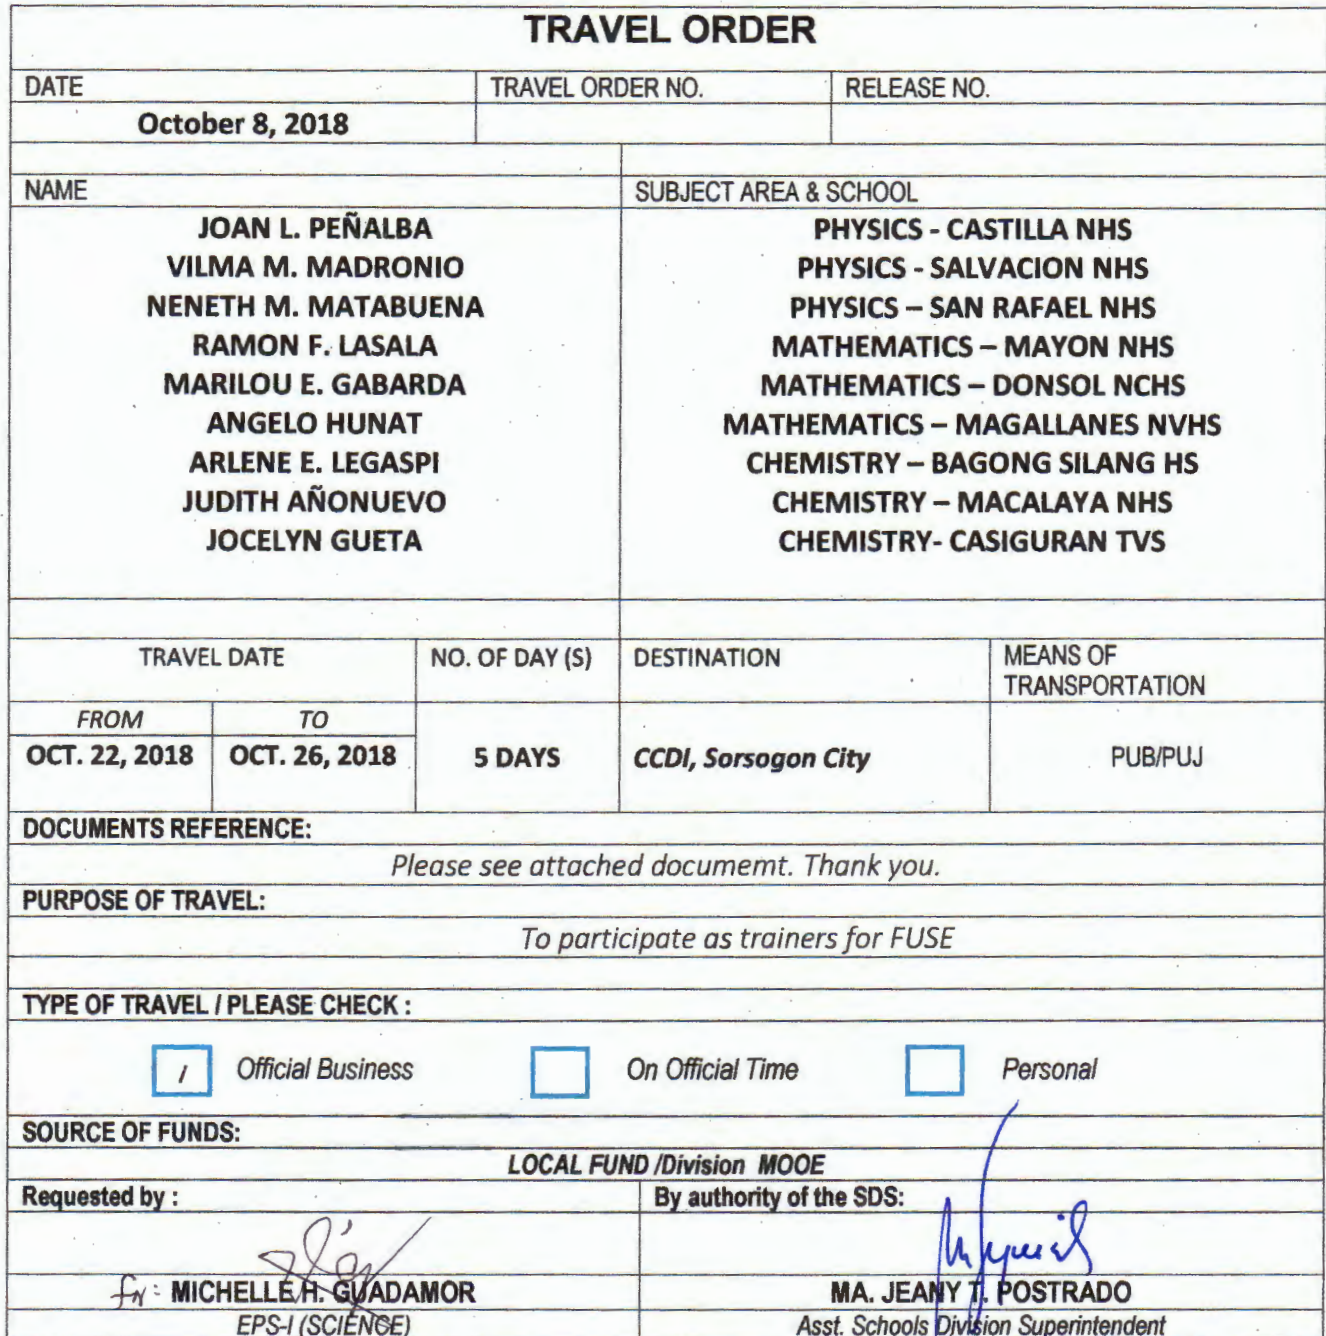 TRAVEL ORDER
DATE TRAVEL ORDER NO. RELEASE NO.
October 8, 2018
NAME SUBJECT AREA & SCHOOL
JOAN L. PEÑALBA PHYSICS - CASTILLA NHS
VILMA M. MADRONIO PHYSICS - SALVACION NHS
NENETH M. MATABUENA PHYSICS – SAN RAFAEL NHS
RAMON F. LASALA MATHEMATICS – MAYON NHS
MARILOU E. GABARDA MATHEMATICS – DONSOL NCHS
ANGELO HUNAT MATHEMATICS – MAGALLANES NVHS
ARLENE E. LEGASPI CHEMISTRY – BAGONG SILANG HS
JUDITH AÑONUEVO CHEMISTRY – MACALAYA NHS
JOCELYN GUETA CHEMISTRY- CASIGURAN TVS
TRAVEL DATE NO. OF DAY (S) DESTINATION MEANS OF
TRANSPORTATION
FROM TO
OCT. 22, 2018 OCT. 26, 2018 5 DAYS CCDI, Sorsogon City PUB/PUJ
DOCUMENTS REFERENCE:
Please see attached documemt. Thank you.
PURPOSE OF TRAVEL:
To participate as trainers for FUSE
TYPE OF TRAVEL / PLEASE CHECK :
/ Official Business On Official Time Personal
SOURCE OF FUNDS:
LOCAL FUND /Division MOOE
Requested by : By authority of the SDS:
for: MICHELLE H. GUADAMOR MA. JEANY T. POSTRADO
EPS-I (SCIENCE) Asst. Schools Division Superintendent